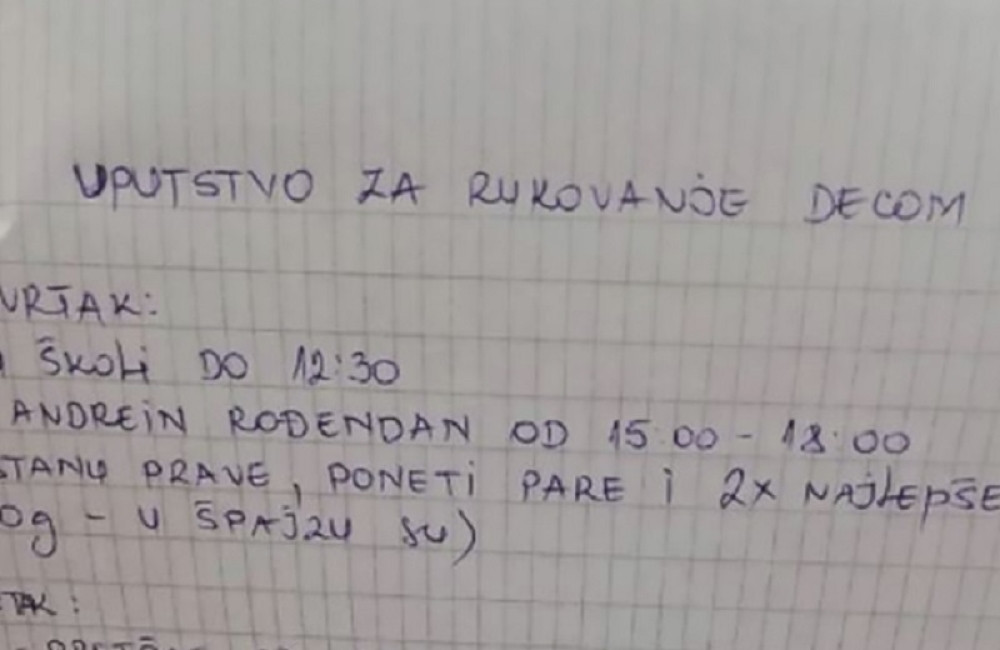 UPUTSTVO ZA RUKOVANJE DECOM
VRTAK:
ŠKOLI DO 12:30
ANDREIN ROĐENDAN OD 15:00 - 18:00
STANU PRAVE, PONETI PARE I 2X NAJLEPŠE
OG - U ŠPAJZU SU)
TAK: